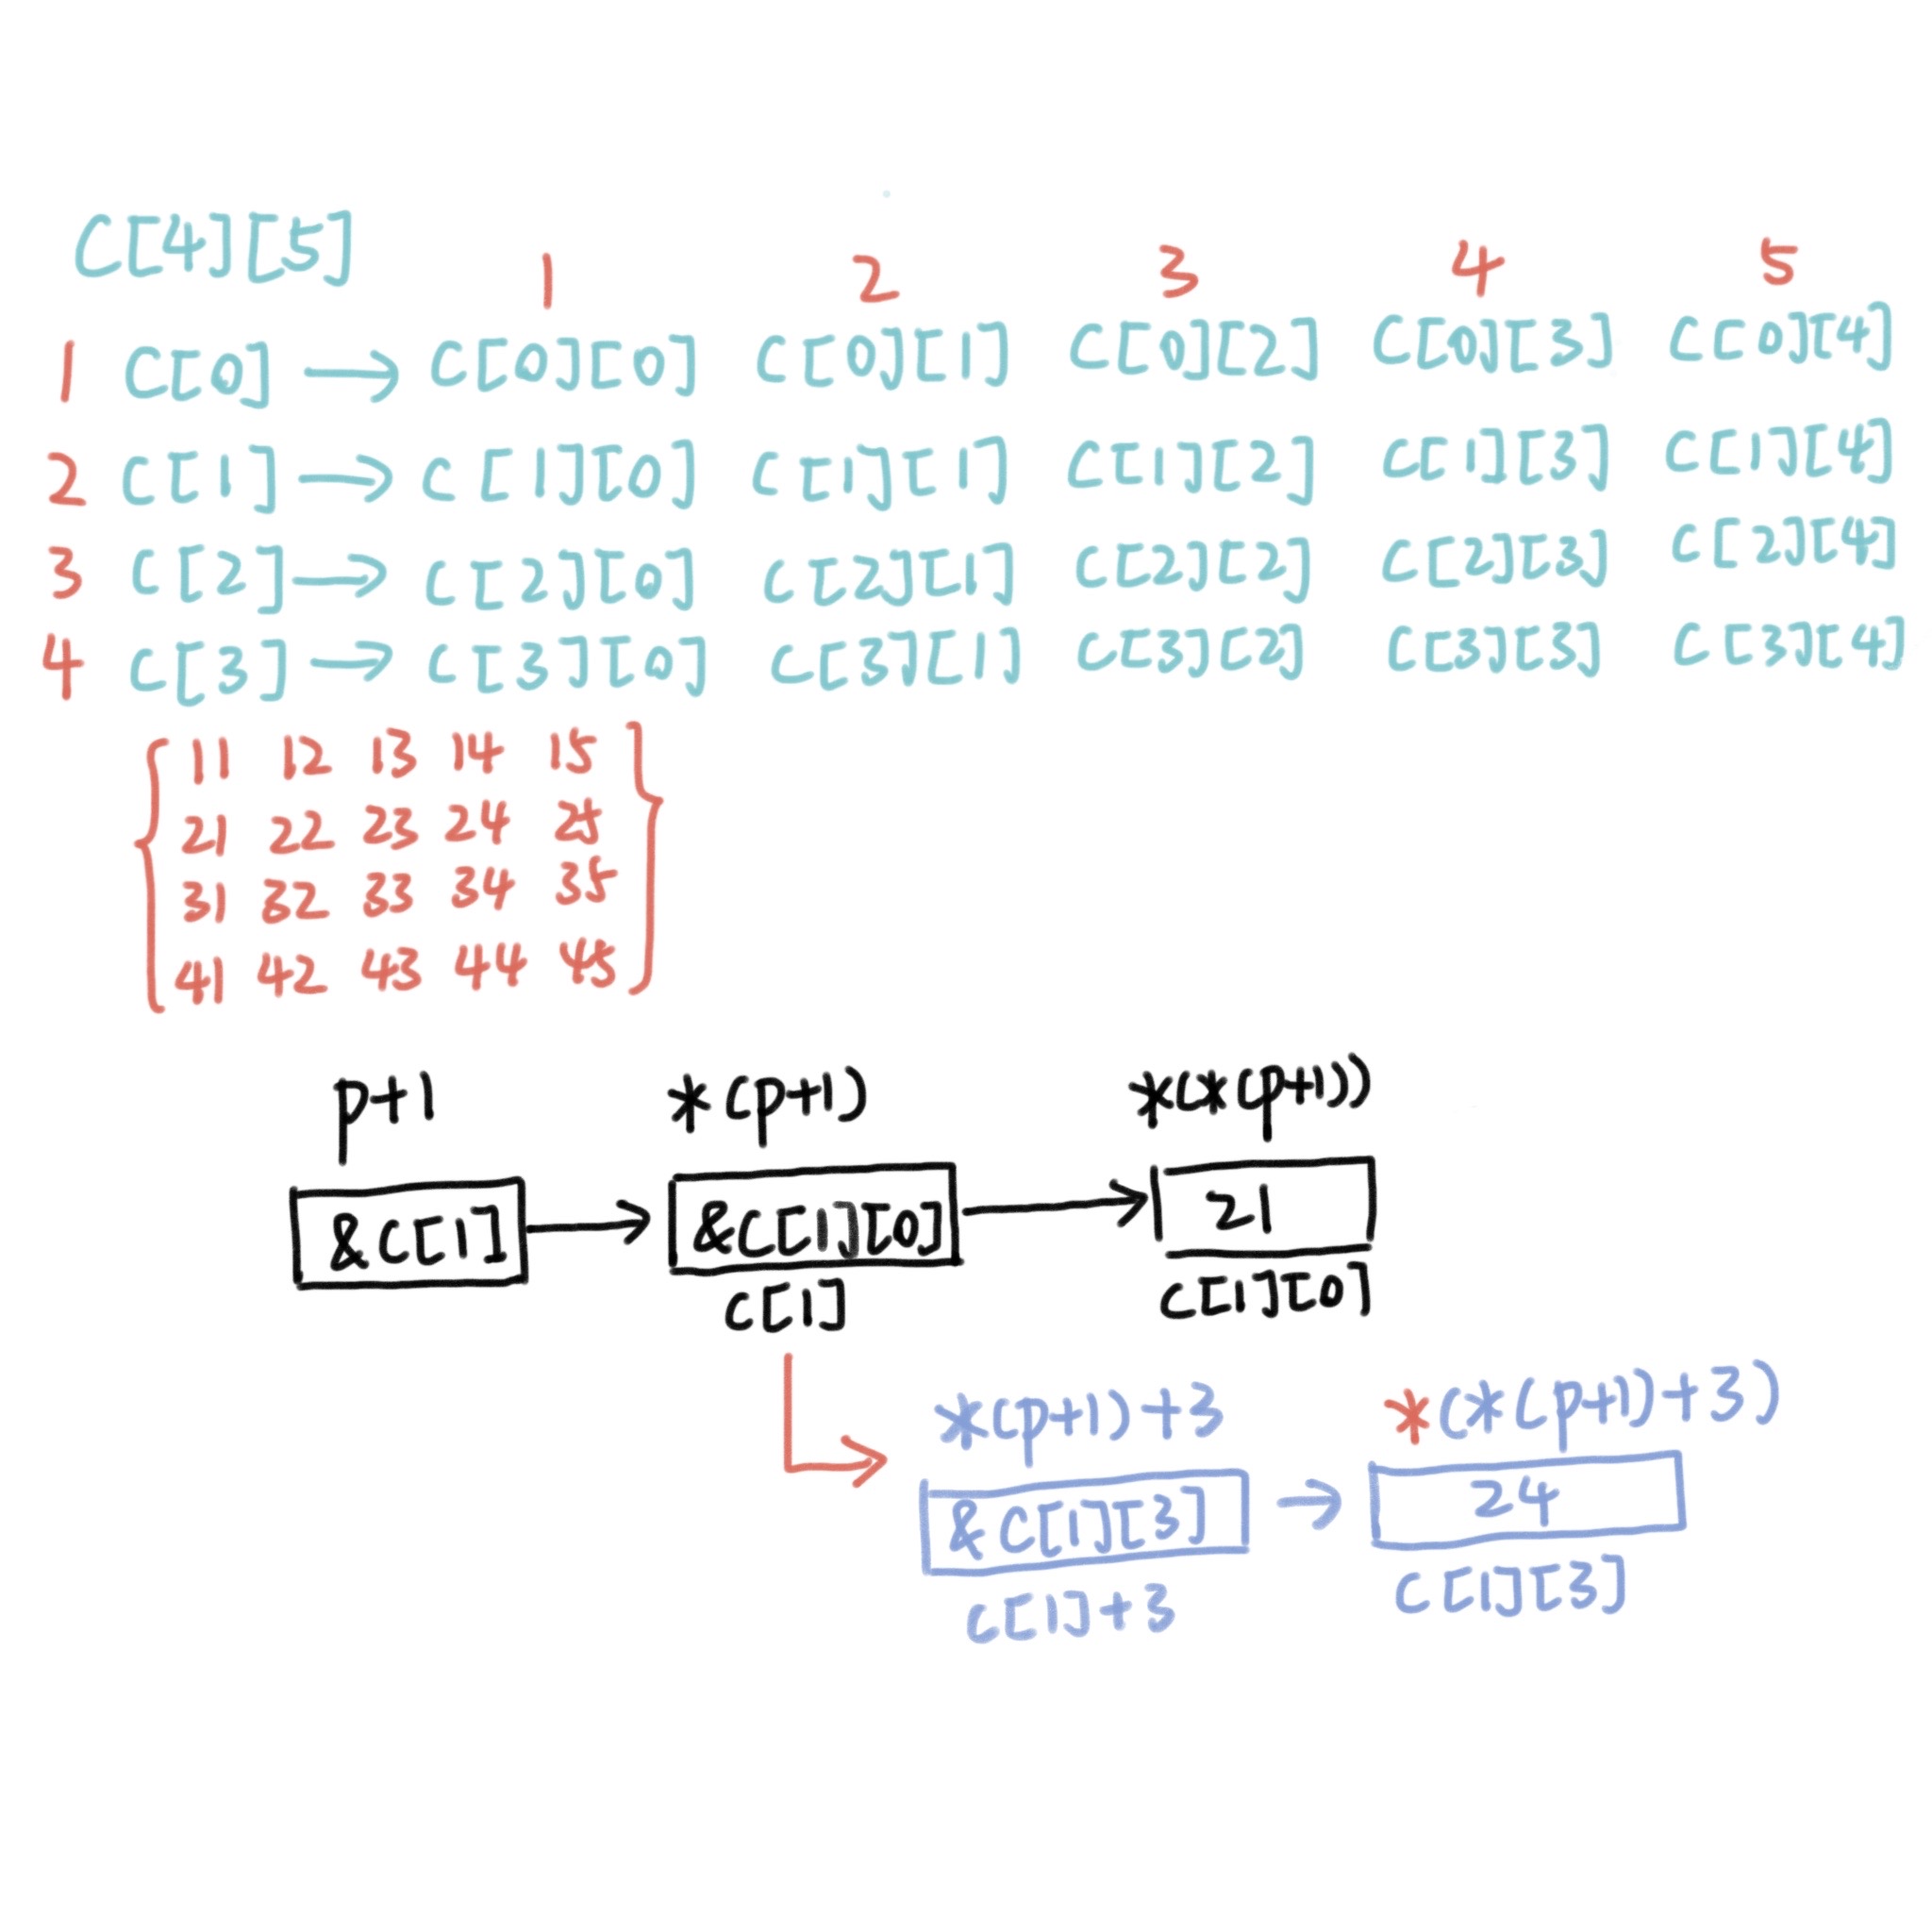 C[4][5]
1 2 3 4 5
1 C[0] → C[0][0] C[0][1] C[0][2] C[0][3] C[0][4]
2 C[1] → C[1][0] C[1][1] C[1][2] C[1][3] C[1][4]
3 C[2] → C[2][0] C[2][1] C[2][2] C[2][3] C[2][4]
4 C[3] → C[3][0] C[3][1] C[3][2] C[3][3] C[3][4]
11 12 13 14 15
21 22 23 24 25
31 32 33 34 35
41 42 43 44 45
p+1 *(p+1) *(*(p+1))
&C[1] → &C[1][0] → 21
C[1] C[1][0]
*(p+1)+3 *(*(p+1)+3)
&C[1][3] → 24
C[1]+3 C[1][3]